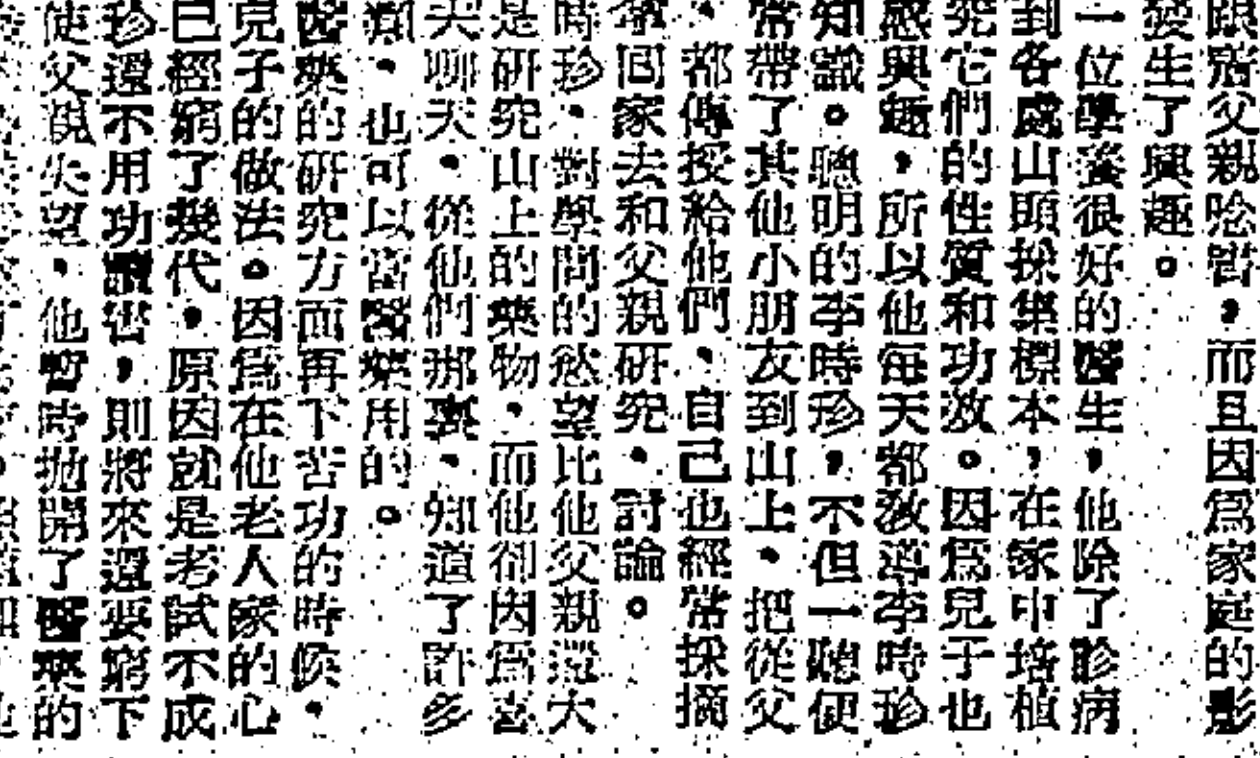 跟着父親唸書，而且因爲家庭的影
發生了興趣。
一位學養很好的醫生，他除了診病
到各處山頭採集標本，在家中培植
究它們的性質和功效。因爲兒子也
感興趣，所以他每天都敎導李時珍
知識。聰明的李時珍，不但一聽便
常帶了其他小朋友到山上，把從父
，都傳授給他們，自己也經常採摘
拿回家去和父親研究，討論。
時珍，對學問的慾望比他父親還大
是研究山上的藥物，而他卻因爲喜
天聊天，從他們那裏，知道了許多
類，也可以當醫藥用的。
醫藥的研究力而再下苦功的時候，
兒子的做法。因爲在他老人家的心
已經窮了幾代，原因就是老試不成
珍還不用功讀書，則將來還要窮下
使父親失望，他暫時拋開了醫藥的